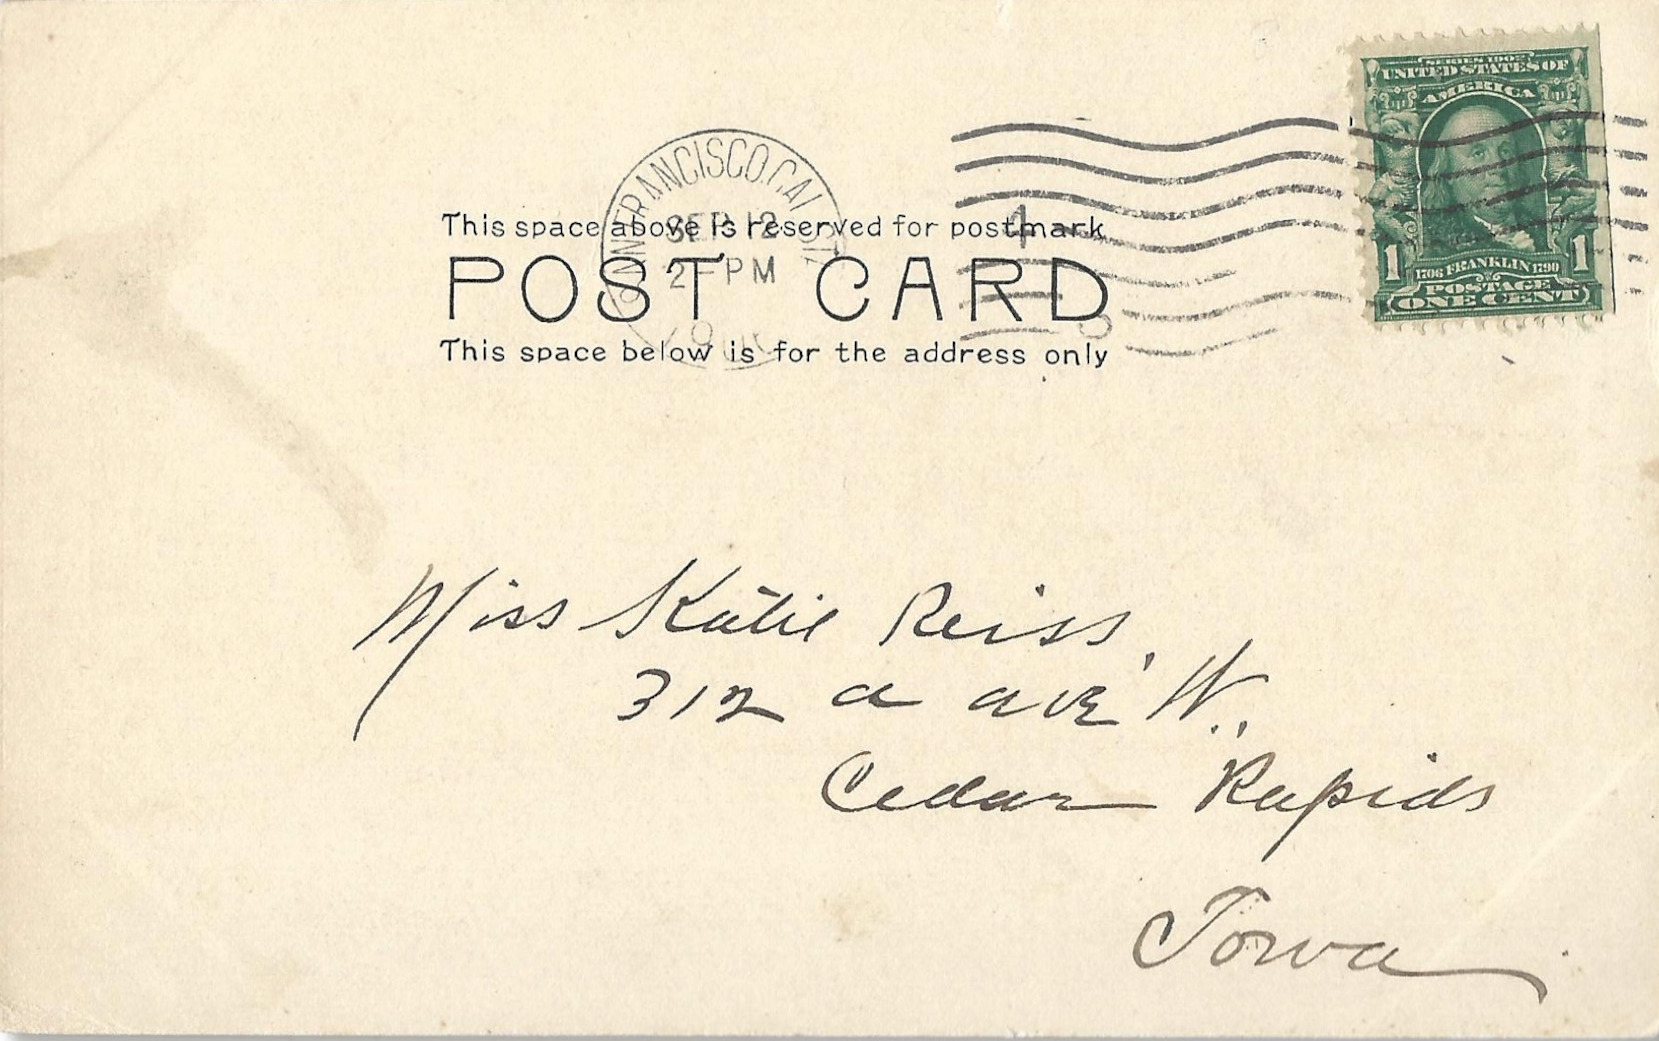 SERIES 1902
UNITED STATES OF
AMERICA
1 1706 FRANKLIN 1790 1
POSTAGE
ONE CENT
FRANCISCO, CAL
SEP 12
2 - PM
4
This space above is reserved for postmark
POST CARD
This space below is for the address only
Miss Katie Reiss,
312 a ave W.,
Cedar Rapids
Iowa